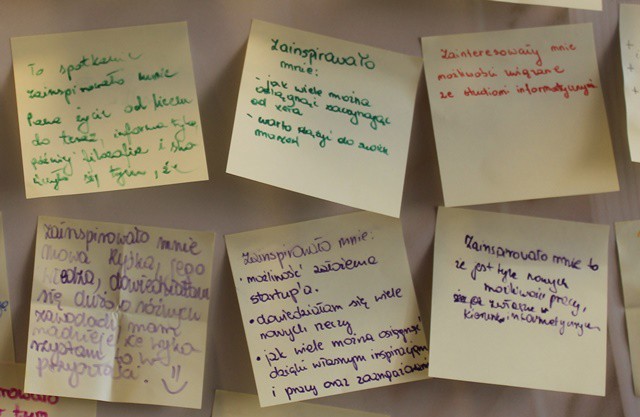 To spotkanie
zainspirowało mnie
Pana życie od liceum
do teraz, informatyka
później filozofia i
się tym, że
Zainspirowało
mnie:
- jak wiele można
osiągnąć zaczynając
od zera
- warto dążyć do swoich
marzeń
Zainteresowały mnie
możliwości związane
ze studiami informatycznymi
Zainspirowało mnie
mowa Ryśka, jego
wiedza, dowiedziałam
się dużo o różnych
zawodach mam
nadzieję że wyko-
rzystam to w
przyszłości.
Zainspirowało mnie:
• możliwość założenia
startup'a.
• dowiedziałam się wiele
nowych rzeczy
• jak wiele można osiągnąć
dzięki własnym inspiracjom
i pracy oraz zaangażowaniu
Zainspirowało mnie to
że jest tyle nowych
możliwości pracy,
zwłaszcza w
kierunk. informatycznym
tym